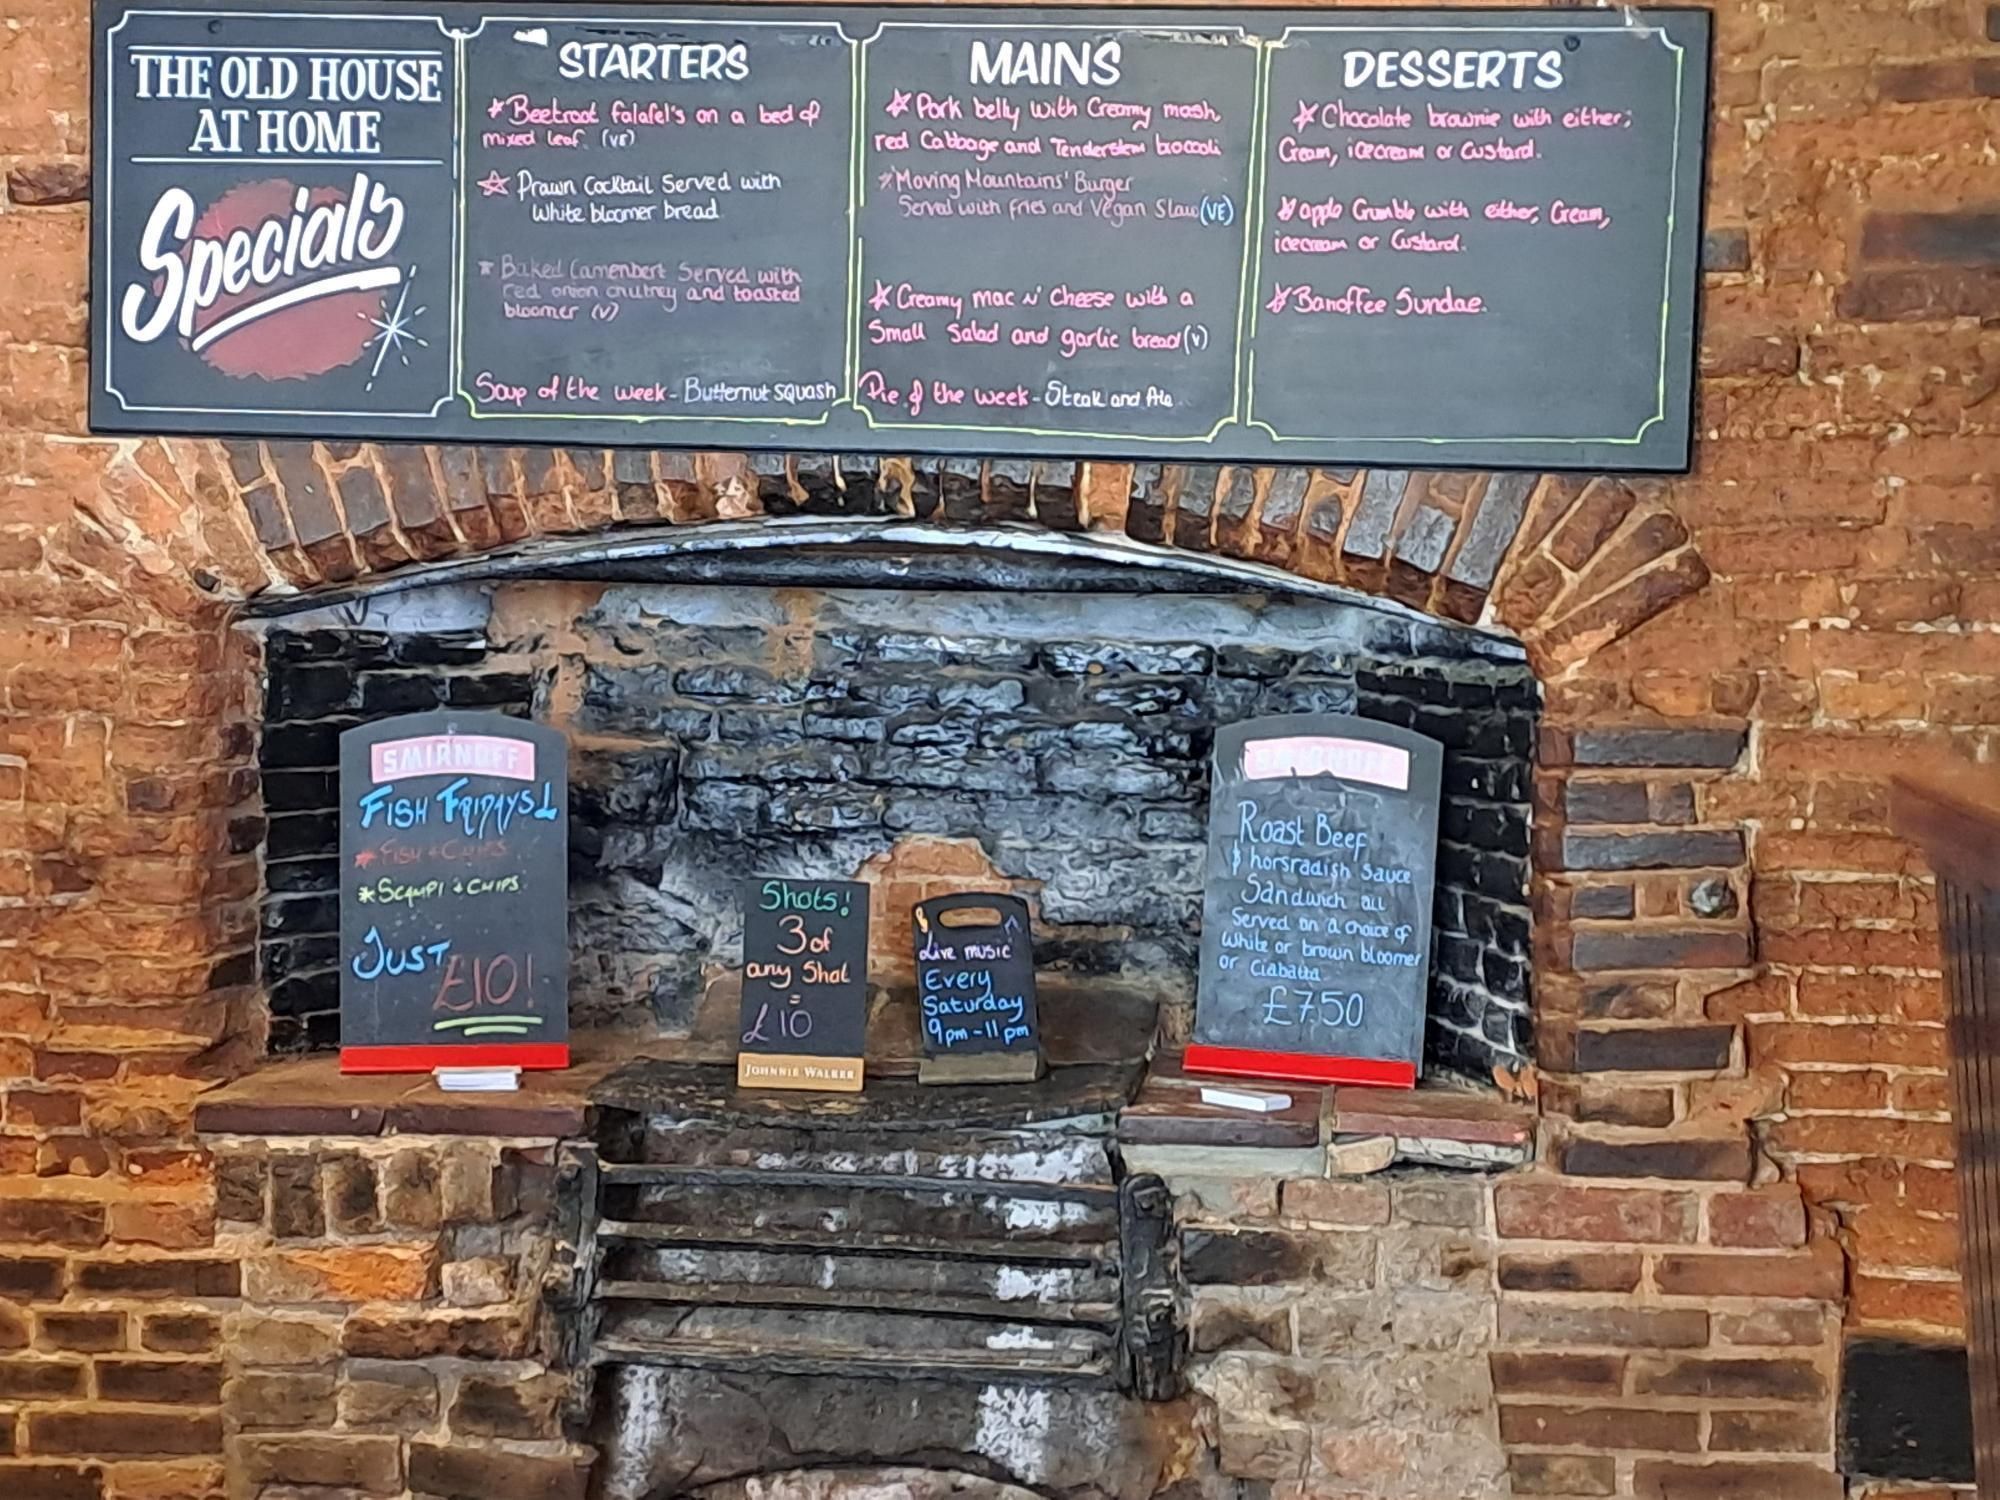 THE OLD HOUSE
AT HOME
Specials
STARTERS
Beetroot falafel's on a bed of
mixed leaf. (VE)
Prawn Cocktail Served with
White bloomer bread
Baked Camenbert Served with
red onion chutney and toasted
bloomer (V)
Soup of the week - Butternut squash
MAINS
Pork belly with Creamy mash,
red Cabbage and Tenderstem broccoli
Moving Mountains' Burger
Served with fries and Vegan Slaw (VE)
Creamy mac N' Cheese with a
Small Salad and garlic bread (V)
Pie of the week - Steak and Ale
DESSERTS
Chocolate brownie with either;
Cream, icecream or Custard.
apple Crumble with either, Cream,
icecream or Custard.
Banoffee Sundae.
SMIRNOFF
FISH FRIDAYS!
FISH + CHIPS
SCAMPI + CHIPS
JUST
£10!
Shots!
3 of
any Shot
=
£10
JOHNNIE WALKER
Live music
Every
Saturday
9pm - 11pm
SMIRNOFF
Roast Beef
& horsradish Sauce
Sandwich all
Served on a choice of
White or brown bloomer
or Ciabatta
£7.50